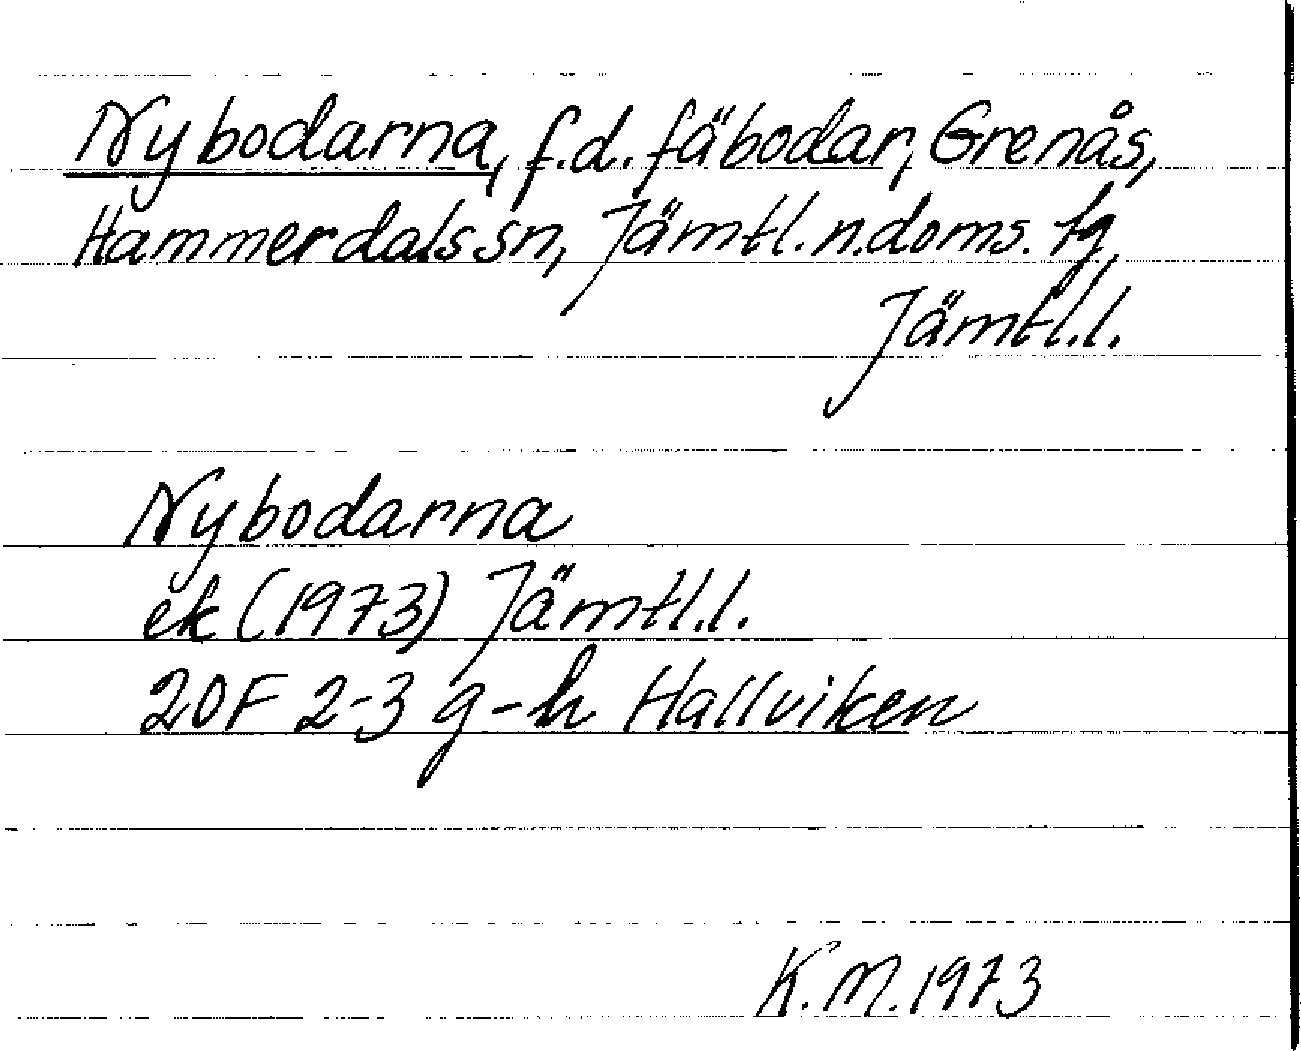 Nybodarna, f.d. fäbodar, Grenås,
Hammerdals sn, Jämtl. n. doms. tg,
Jämtl.l.
Nybodarna
ek (1973) Jämtl.l.
20F 2-3 g-h Hallviken
K.M. 1973